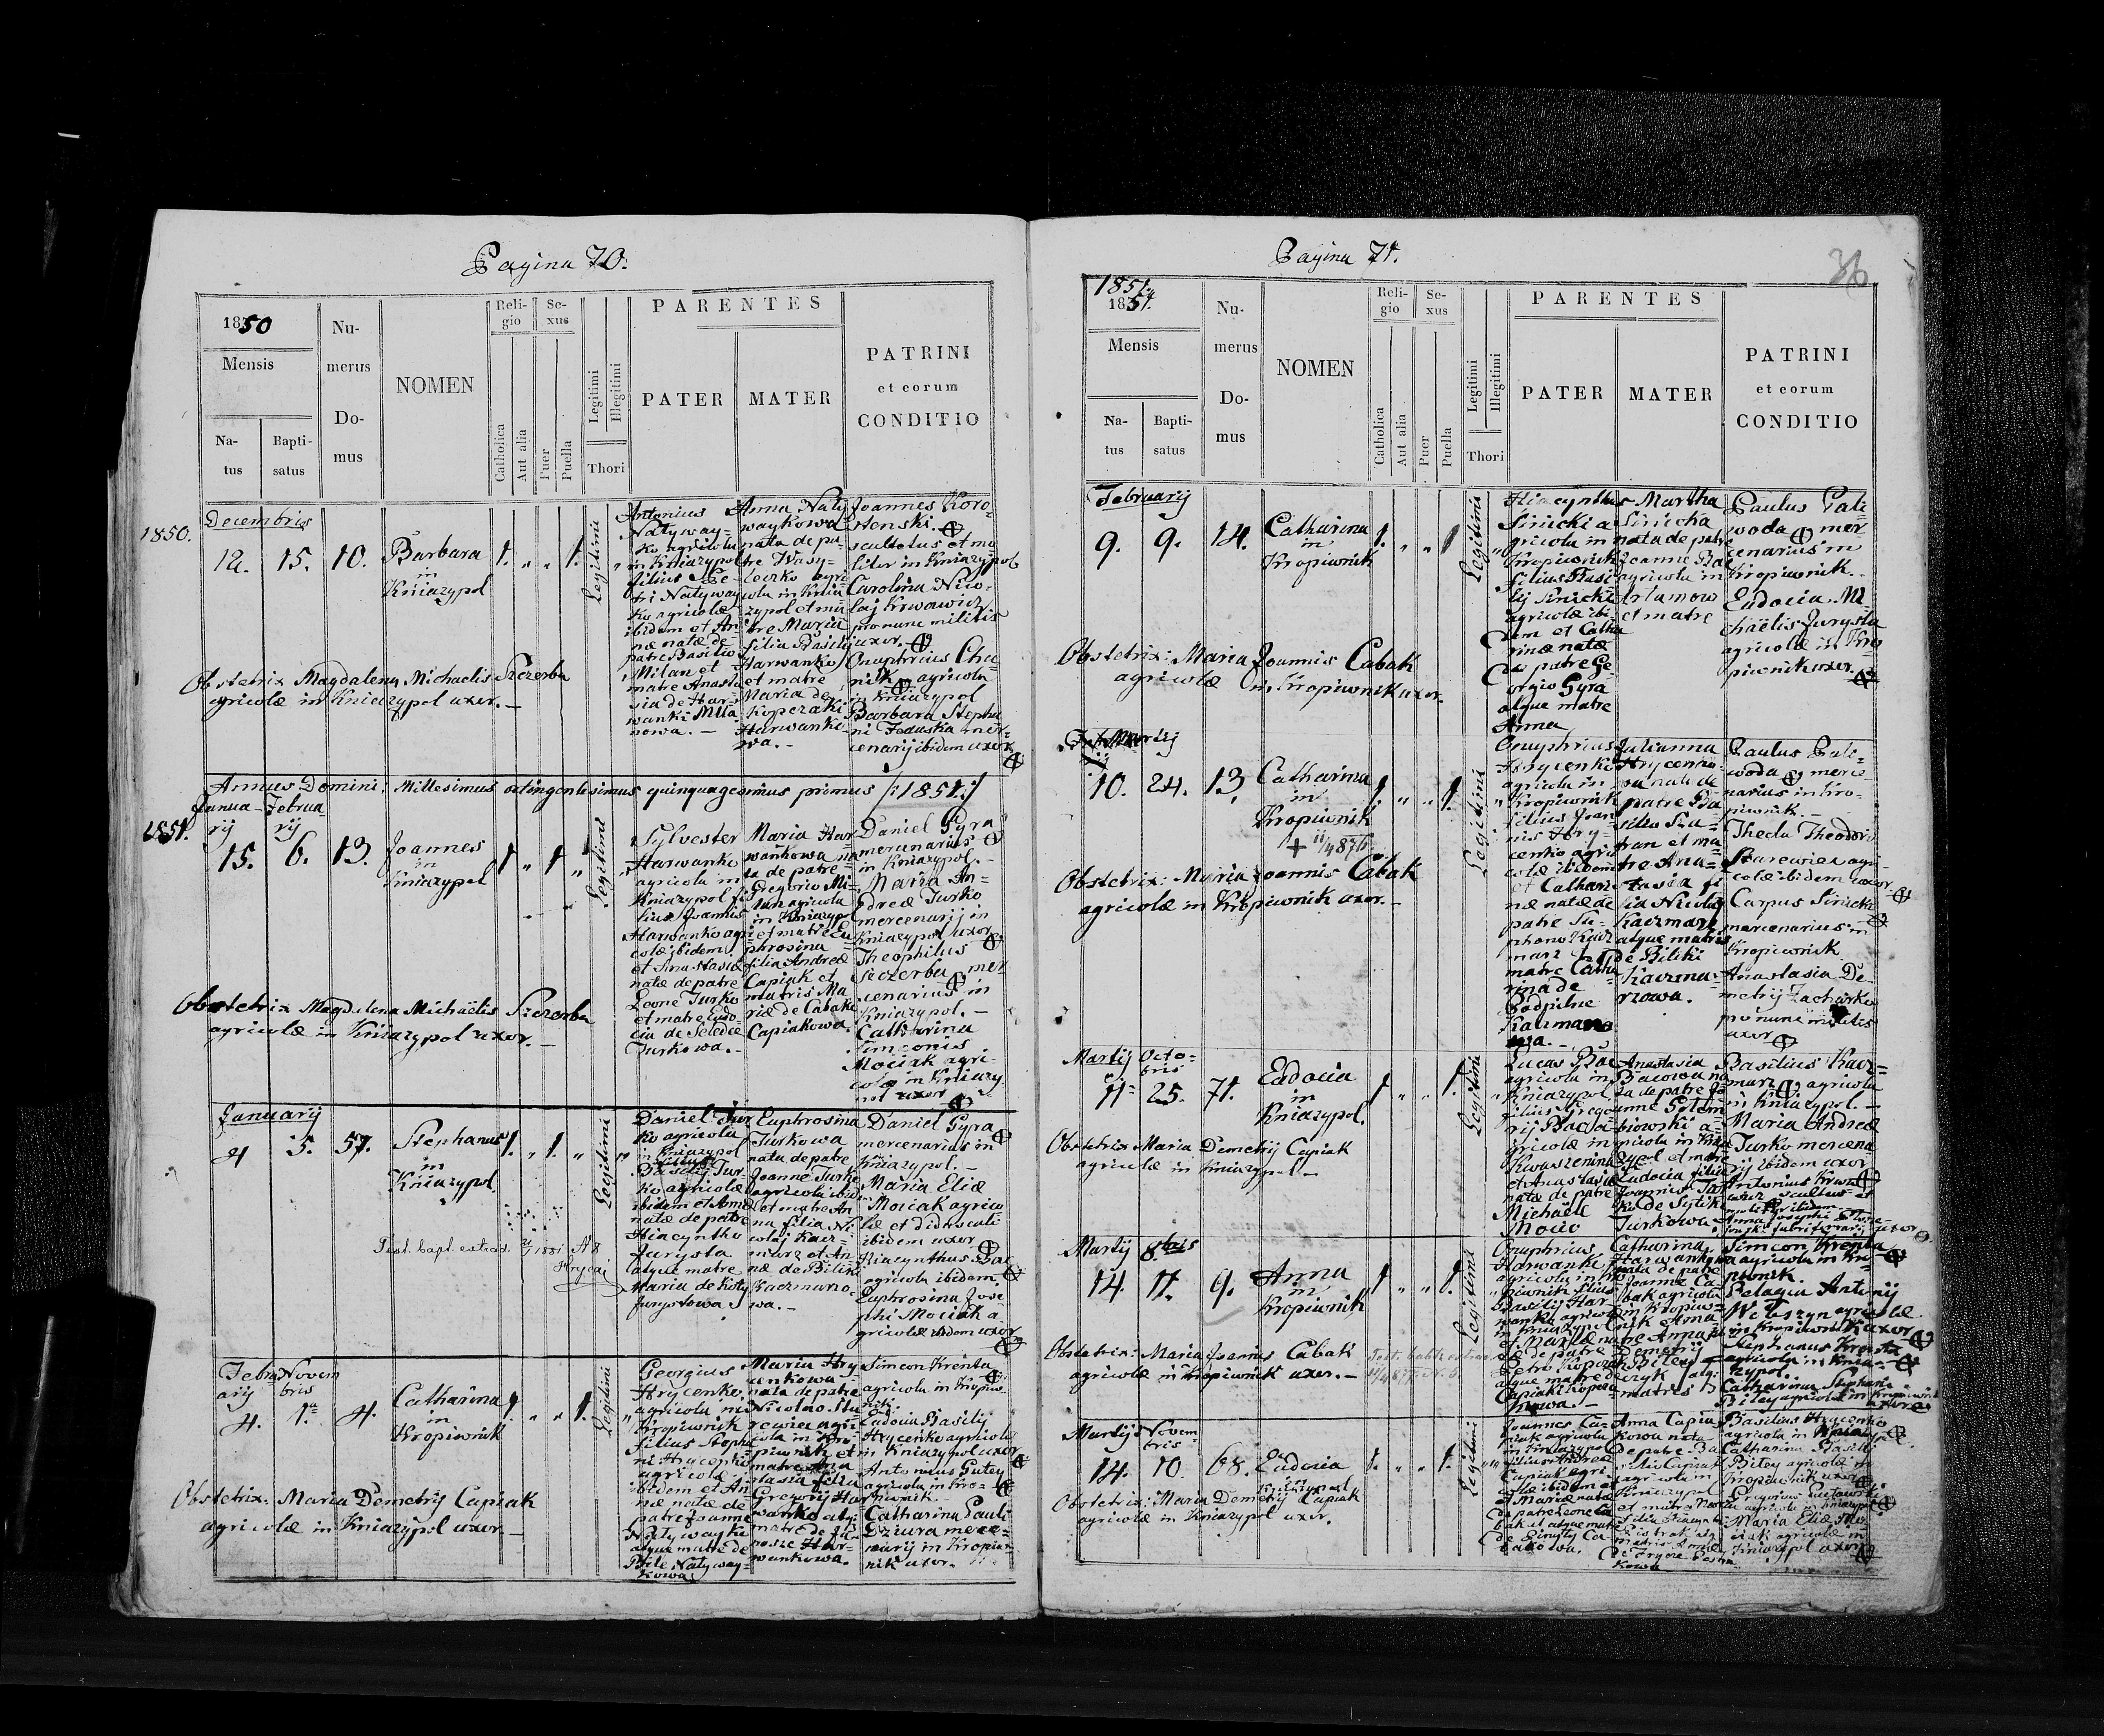 Pagina 70.
1850
Mensis
Na-
tus
Bapti-
satus
Nu-
merus
Do-
mus
NOMEN
Reli-
gio
Catholica
Aut alia
Se-
xus
Puer
Puella
Legitimi
Illegitimi
Thori
PARENTES
PATER
MATER
PATRINI
et eorum
CONDITIO
1850.
Decembris
12. 15. 10. Barbara
in
Kniazypol
1. „ „ 1.
Legitimi
Antonius
Natyway-
ko agricola
in Kniazypol
filius Pe-
tri Natyway
ko agricolæ
ibidem et An-
næ natæ de
patre Basilio
Milan et
matre Anasta
sia de Har-
wanki Mila
nowa.-
Anna Naty
waykowa
nata de pa-
tre Wasy-
leczko agri
cola in Knia
zypol et ma
tre Maria
filia Basilij
Harwanko
et matre
Maria de
Kopczaki
Harwanko-
wa.-
Joannes Koro-
stenski.
scultetus et mo
litor in Kniazypol
Carolina Nico-
laj Krwawicz
pro nunc militis
uxor.
Onuphrius Cha-
nik agricola
in Kniazypol
Barbara Stepha
ni Feduska mer-
cenarij ibidem uxor
Obstetrix Magdalena Michaelis Szczerba
agricolæ in Kniazypol uxor.-
Annus Domini, Millesimus octingentesimus quinquagesimus primus /:1851:/
1851.
Janua-
rij
Februa
rij
15. 6. 13. Joannes
in
Kniazypol
1 „ 1 „
Legitimi
Sylvester
Harwanko
agricola in
Kniazypol fi-
lius Joannis
Harwanko agri
colæ ibidem
et Anastasiæ
natæ de patre
Leone Turko
et matre Eudo-
cia de Seledec
Turkowa.-
Maria Har
wankowa na
ta de patre
Gregorio Mi-
lan agricola
in Kniazypol
et matre Eu
phrosina
filia Andreæ
Capiak et
matris Ma
riæ de Cabaki
Capiakowa.
Daniel Gyra
mercenarius
in Kniazypol.-
Maria An-
dreæ Turko
mercenarij in
Kniazypol uxor
Theophilus
Szczerba mer
cenarius in
Kniazypol.-
Catharina
Simeonis
Mociak agri-
colæ in Kniazy
pol uxor
Obstetrix Magdalena Michaëlis Szczerba
agricolæ in Kniazypol uxor.-
Januarij
4 5. 57. Stephanus
in
Kniazypol
1. „ 1. „
Legitimi
Daniel Tur
ko agricola
in Kniazypol
filius
Basilij Tur
ko agricolæ
ibidem et Annæ
natæ de patre
Hiacyntho
Jurysta
atque matre
Maria de Koty
Jurystowa
Euphrosina
Turkowa
nata de patre
Joanne Turko
agricola ibid
et matre An
na filia Ni
colaj Kacz-
marz et An
næ de Biliki
Kaczmaro-
wa.-
Daniel Gyra
mercenarius in
Kniazypol.-
Maria Eliæ
Mociak agrico
læ et didascali
ibidem uxor
Hiacynthus Bac
agricola ibidem
Euphrosina Jose
phi Mociak a-
gricolæ ibidem uxor
Test. bapt. extrad.
Februa
arij
Novem
bris
4. 1ª 4. Catharina
in
Kropiwnik
1. „ „ 1.
Legitimi
Georgius
Hrycenko
agricola in
Kropiwnik
filius Stepha
ni Hrycenko
agricolæ
ibidem et An-
næ natæ de
patre Joanne
Natywayko
atque matre de
Bile Natyway-
kowa
Maria Hry
cenkowa
nata de patre
Nicolao Sta
rewicz agri
cola in Kro
piwnik et
matre Ana
stasia filia
Gregorij Har
wanko atq:
matre de Ju
nosze Har-
wankowa.
Simeon Krenta
agricola in Kropiw-
nik.
Eudocia Basilij
Hrycenko agricolæ
in Kniazypol uxor
Antonius Gutey
agricola in Kro-
piwnik.
Catharina Pauli
Dziura merce-
narij in Kropiw-
nik uxor.
Obstetrix: Maria Demetrij Capiak
agricolæ in Kniazypol uxor.-
Pagina 71.
36
1851.
1851.
Mensis
Na-
tus
Bapti-
satus
Nu-
merus
Do-
mus
NOMEN
Reli-
gio
Catholica
Aut alia
Se-
xus
Puer
Puella
Legitimi
Illegitimi
Thori
PARENTES
PATER
MATER
PATRINI
et eorum
CONDITIO
Februarij
9. 9. 14. Catharina
in
Kropiwnik
1. „ „ 1
Legitimi
Hiacynthus
Sinicki a
gricola in
Kropiwnik
filius Basi
lij Sinicki
agricolæ ibi-
dem et Catha
rinæ natæ
de patre Ge-
orgio Gyra
atque matre
Anna
Martha
Sinicka
nata de patre
Joanne Ba
agricola in
Artamow
et matre
Paulus Pali-
woda mer
cenarius in
Kropiwnik.-
Eudocia Mi-
chaëlis Jurysta
agricolæ in Kro
piwnik uxor.
Obstetrix: Maria Joannis Cabak
agricolæ in Kropiwnik uxor.
Martij
10. 24. 13. Catharina
in
Kropiwnik
1. „ „ 1.
Legitimi
Onuphrius
Hrycenko
agricola in
Kropiwnik
filius Joan
nis Hry-
cenko agri
colæ ibidem
et Cathari
næ natæ de
patre Ste-
phano Kacz
marz et
matre Catha
rina de
Podpilne
Kaczmaro
wa.-
Julianna
Hrycenko
wa nata de
patre Ba
silio Sza-
fran et ma-
tre Ana-
stasia fi
lia Nicolaj
Kaczmarz
atque matris
de Biliki
Kaczma-
rzowa.
Paulus Pali-
woda merce
narius in Kro-
piwnik.-
Thecla Theodori
Starewicz agri-
colæ ibidem uxor.
Carpus Sinicki
mercenarius in
Kropiwnik
Anastasia De-
metrij Zacharko
pro nunc militis
uxor
Obstetrix: Maria Joannis Cabak
agricolæ in Kropiwnik uxor.-
Martij
Octo-
bris
11. 25. 71. Eudocia
in
Kniazypol.
1 „ „ 1.
Legitimi
Lucas Bac
agricola in
Kniazypol
filius Grego
rij Bac a-
gricolæ in
Kwaszenina
et Anastasiæ
natæ de patre
Michaële
Mocio
Anastasia
Bacowa na
ta de patre Jo
anne Golem
biowski a-
gricola in Knia
zypol et matre
Eudocia filia
Joannis Tur
ko de Sytiki
Turkowa.
Basilius Kacz-
marz agricola
in Kniazypol.-
Maria Andreæ
Turko mercena
rij ibidem uxor
Antonius Krwa
wicz scultetus et
molitor ibidem
Obstetrix Maria Demetrij Capiak
agricolæ in Kniazypol.-
Martij 8bris
14. 11. 9. Anna
in
Kropiwnik
1 „ „ 1.
Legitimi
Onuphrius
Harwanko
agricola in Kro
piwnik filius
Basilij Har-
wanko agricolæ
in Kniazypol
et Mariæ na
tæ de patre
Petro Kopczak
atque matre de
Capiaki Kopcza
kowa.-
Catharina
Harwankowa
nata de patre
Joanne Ca-
bak agricola
in Kropiw-
nik et matre Anna
Simeon Krenta
agricola in Kro
piwnik.
Pelagia Antonij
Woloszyn agricolæ
in Kropiwnik uxor
Stephanus Krenta
agricola in Knia-
zypol.
Catharina Stephani
Bitey agricolæ in Kropiwnik
uxor
Obstetrix: Maria Joannis Cabak
agricolæ in Kropiwnik uxor.-
Martij
Novem
bris
14. 10. 68. Eudocia
in
Kniazypol
1. „ „ 1.
Legitimi
Joannes Ca-
piak agricola
in Kniazypol
filius Andreæ
Capiak agri-
colæ ibidem
et Mariæ natæ
de patre Leone Ca
bak et atque matre
Anna Capia
kowa nata
de patre Ba
silio Capiak
agricola in
Kniazypol
et matre Maria
Basilius Hrycenko
agricola in Kniazypol.
Catharina Basilij
Bitey agricolæ in
Kropiwnik uxor
Maria Eliæ Mo-
ciak agricolæ in
Kniazypol uxor
Obstetrix: Maria Demetrij Capiak
agricolæ in Kniazypol uxor.